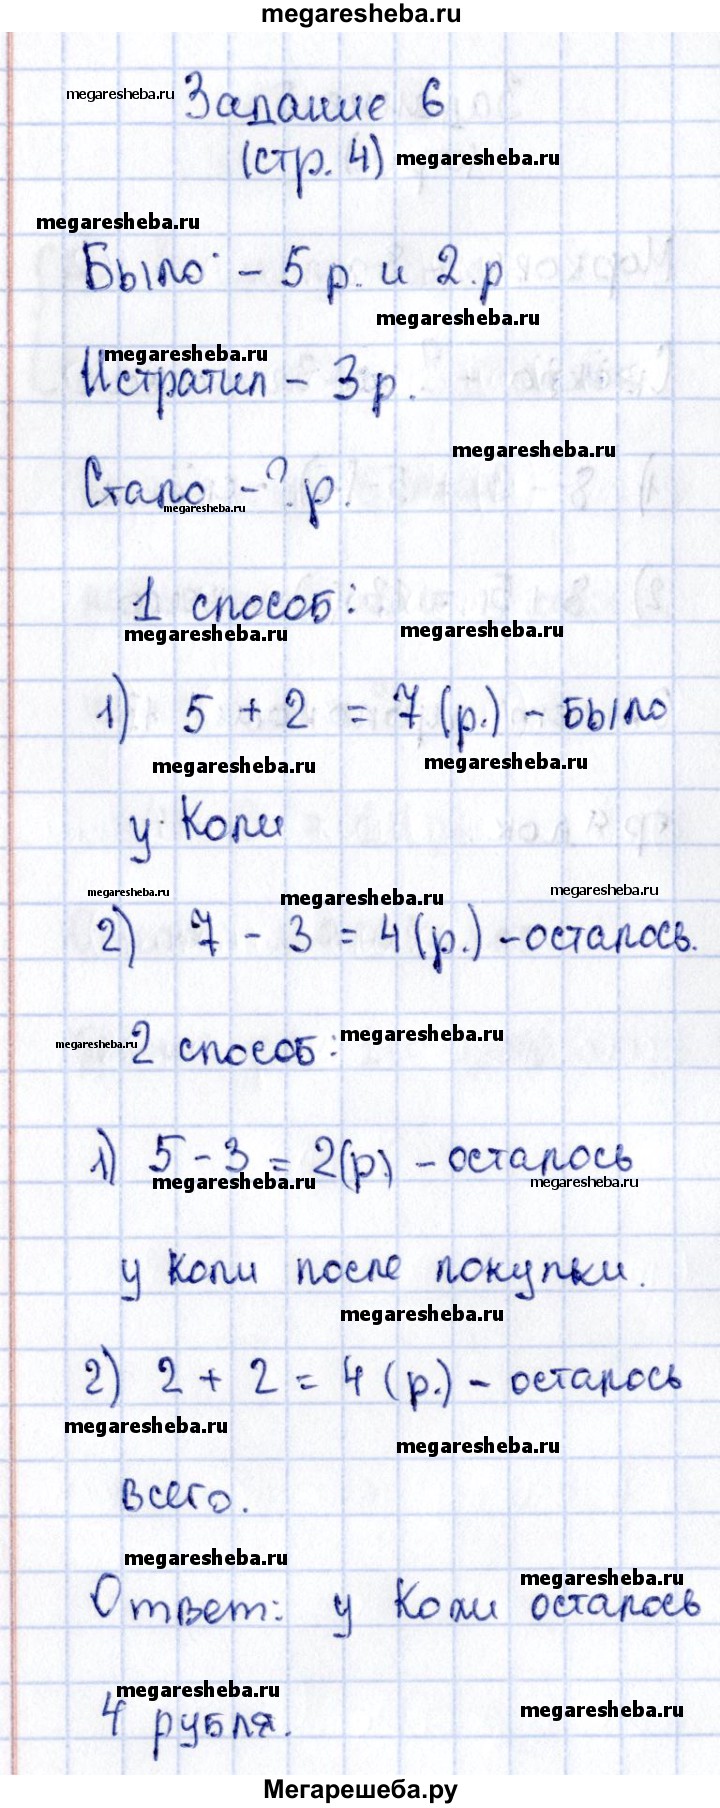 megaresheba.ru
megaresheba.ru
Задание 6
(стр. 4) megaresheba.ru
megaresheba.ru
Было - 5 р. и 2 р
megaresheba.ru
megaresheba.ru
Истратил - 3 р.
megaresheba.ru
Стало - ? р.
megaresheba.ru
1 способ:
megaresheba.ru megaresheba.ru
1) 5 + 2 = 7 (р.) - было
megaresheba.ru megaresheba.ru
у Коли
megaresheba.ru megaresheba.ru megaresheba.ru
2) 7 - 3 = 4 (р.) - осталось.
megaresheba.ru 2 способ: megaresheba.ru
1) 5 - 3 = 2 (р.) - осталось
megaresheba.ru megaresheba.ru
у Коли после покупки.
megaresheba.ru
2) 2 + 2 = 4 (р.) - осталось
megaresheba.ru
megaresheba.ru
всего.
megaresheba.ru
megaresheba.ru
Ответ: у Коли осталось
megaresheba.ru
4 рубля.
megaresheba.ru
Мегарешеба.ру